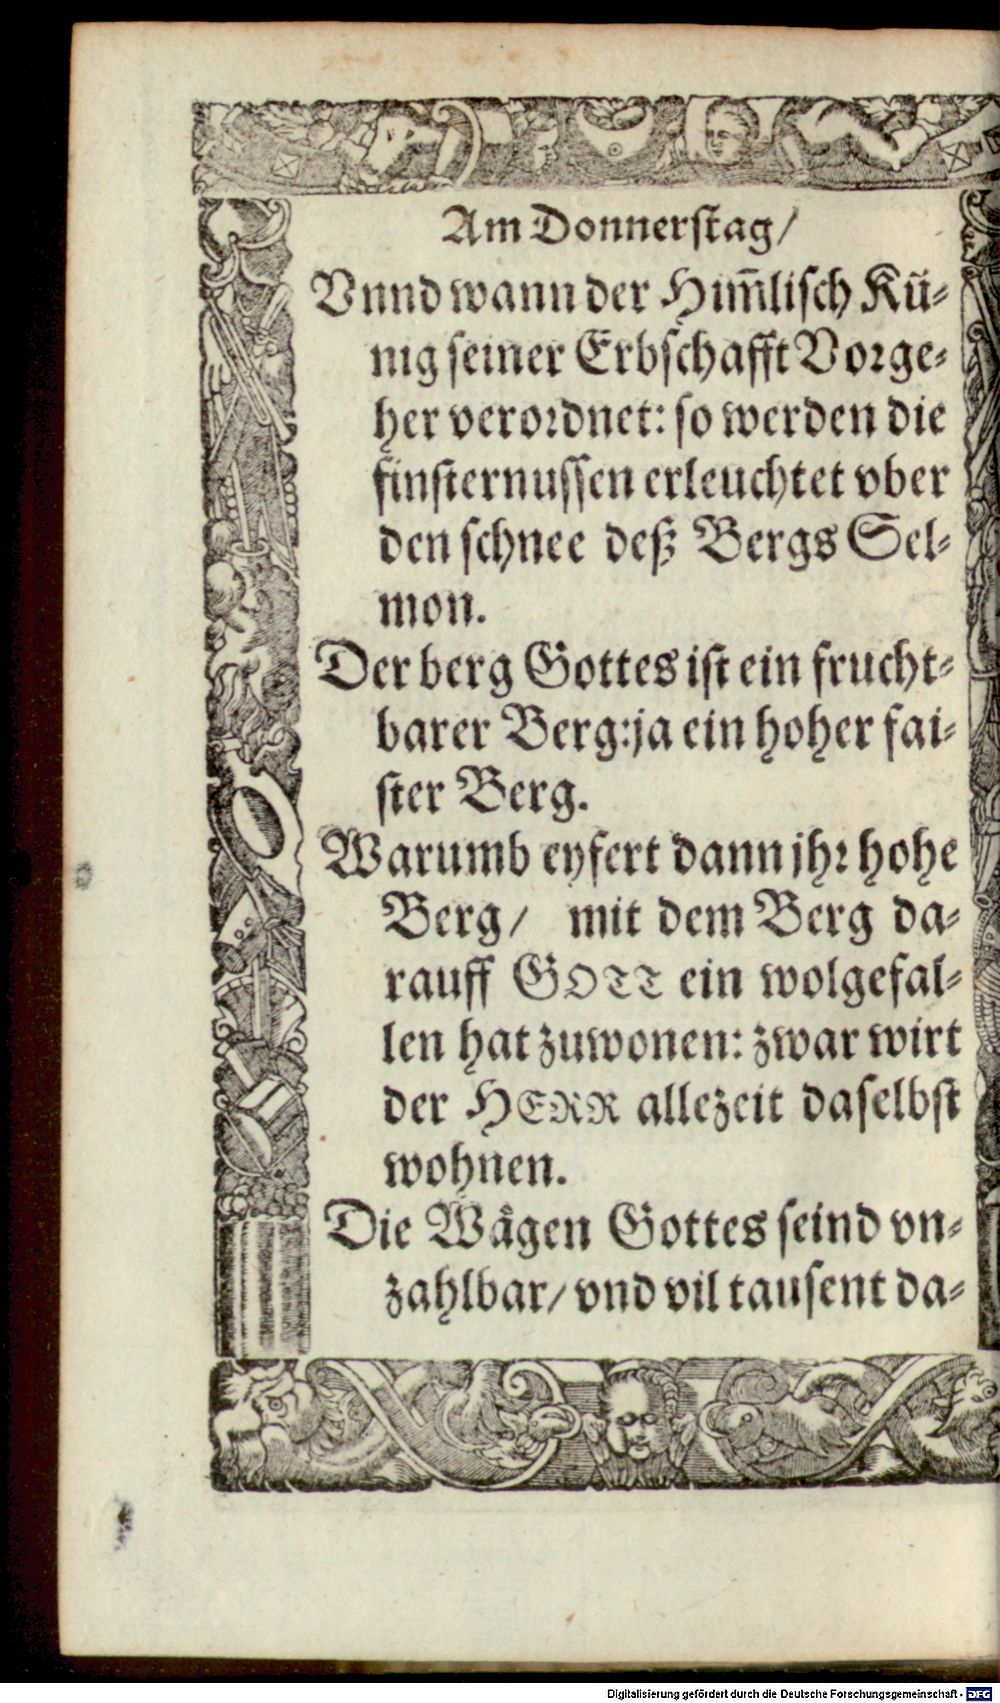 Am Donnerstag/
Vnnd wann der Him̄lisch Kü⸗
nig seiner Erbschafft Vorge⸗
her verordnet: so werden die
finsternussen erleuchtet vber
den schnee deß Bergs Sel⸗
mon.
Der berg Gottes ist ein frucht⸗
barer Berg: ja ein hoher fai⸗
ster Berg.
Warumb eyfert dann jhr hohe
Berg/ mit dem Berg da⸗
rauff GOTT ein wolgefal⸗
len hat zuwonen: zwar wirt
der HERR allezeit daselbst
wohnen.
Die Wägen Gottes seind vn⸗
zahlbar/ vnd vil tausent da⸗
Digitalisierung gefördert durch die Deutsche Forschungsgemeinschaft - DFG